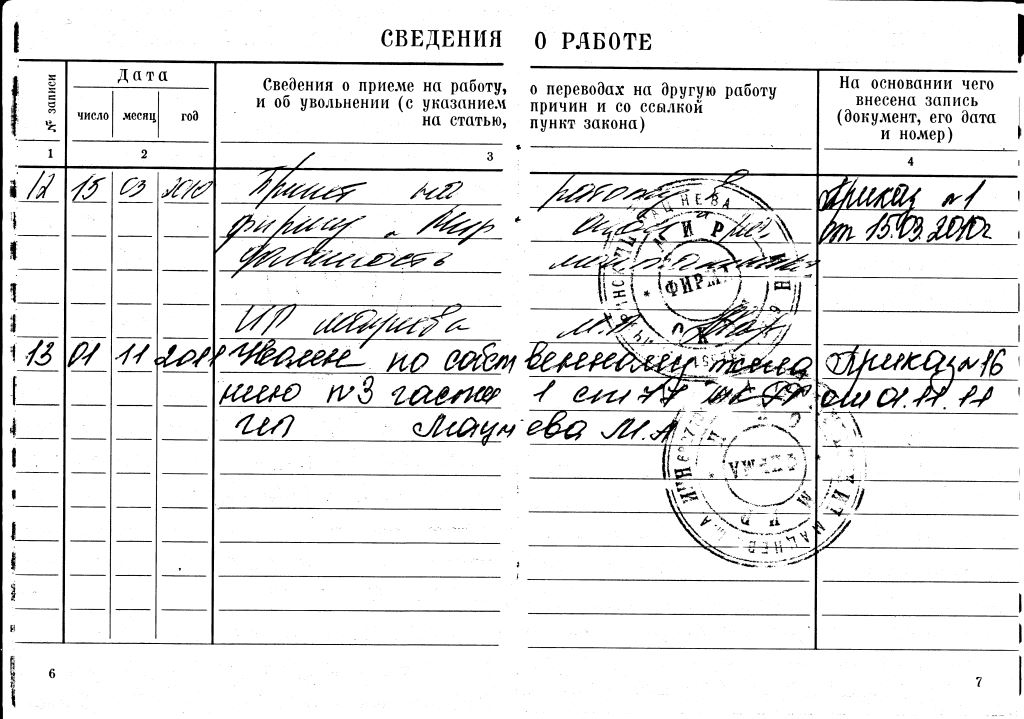 СВЕДЕНИЯ О РАБОТЕ
№ записи
Дата
число месяц год
Сведения о приеме на работу, о переводах на другую работу
и об увольнении (с указанием причин и со ссылкой
на статью, пункт закона)
На основании чего
внесена запись
(документ, его дата
и номер)
1 2 3 4
12 15 03 2010 Принят на работу в Приказ №1
фирму "Мир от 15.03.2010г
должность
ИП Мацнева
13 01 11 2011 Уволен по собственному жела Приказ №16
нию п3 части 1 ст 77 от 01.11.11
ИП Мацнева М.А
МИР
ФИРМА
ФИРМА
МИР
6
7